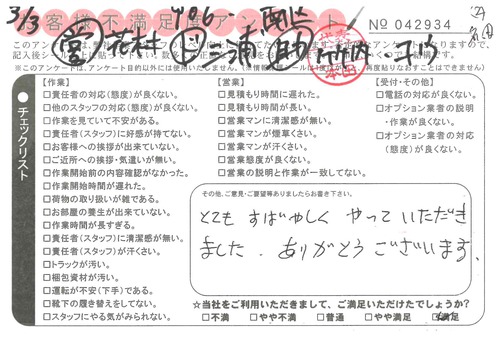 3/3
南区
お客様不満足度アンケート
No 042934
※このアンケートは、アンケート目的以外には使用いたしません。
チェックリスト
【作業】
□責任者の対応(態度)が良くない。
□他のスタッフの対応(態度)が良くない。
□作業を見ていて不安がある。
□責任者(スタッフ)に好感が持てない。
□お客様への挨拶が出来ていない。
□ご近所への挨拶・気遣いが無い。
□作業開始前の内容確認がなかった。
□作業開始時間が遅れた。
□荷物の取り扱いが雑である。
□お部屋の養生が出来ていない。
□作業時間が長すぎる。
□責任者(スタッフ)に清潔感が無い。
□責任者(スタッフ)が汗くさい。
□トラックが汚い。
□梱包資材が汚い。
□運転が不安(下手)である。
□靴下の履き替えをしてない。
□スタッフにやる気がみられない。
【営業】
□見積もり時間に遅れた。
□見積もり時間が長い。
□営業マンに清潔感が無い。
□営業マンが煙草くさい。
□営業マンが汗くさい。
□営業態度が良くない。
□営業の説明と作業が一致してない。
【受付・その他】
□電話の対応が良くない。
□オプション業者の説明
・作業が良くない。
□オプション業者の対応
(態度)が良くない。
その他、ご意見・ご要望等ありましたらお書き下さい。
とても すばやくしく やって いただき
ました。ありがとうございます。
☆当社をご利用いただきまして、ご満足いただけたでしょうか?
□不満 □やや不満 □普通 □やや満足 □満足